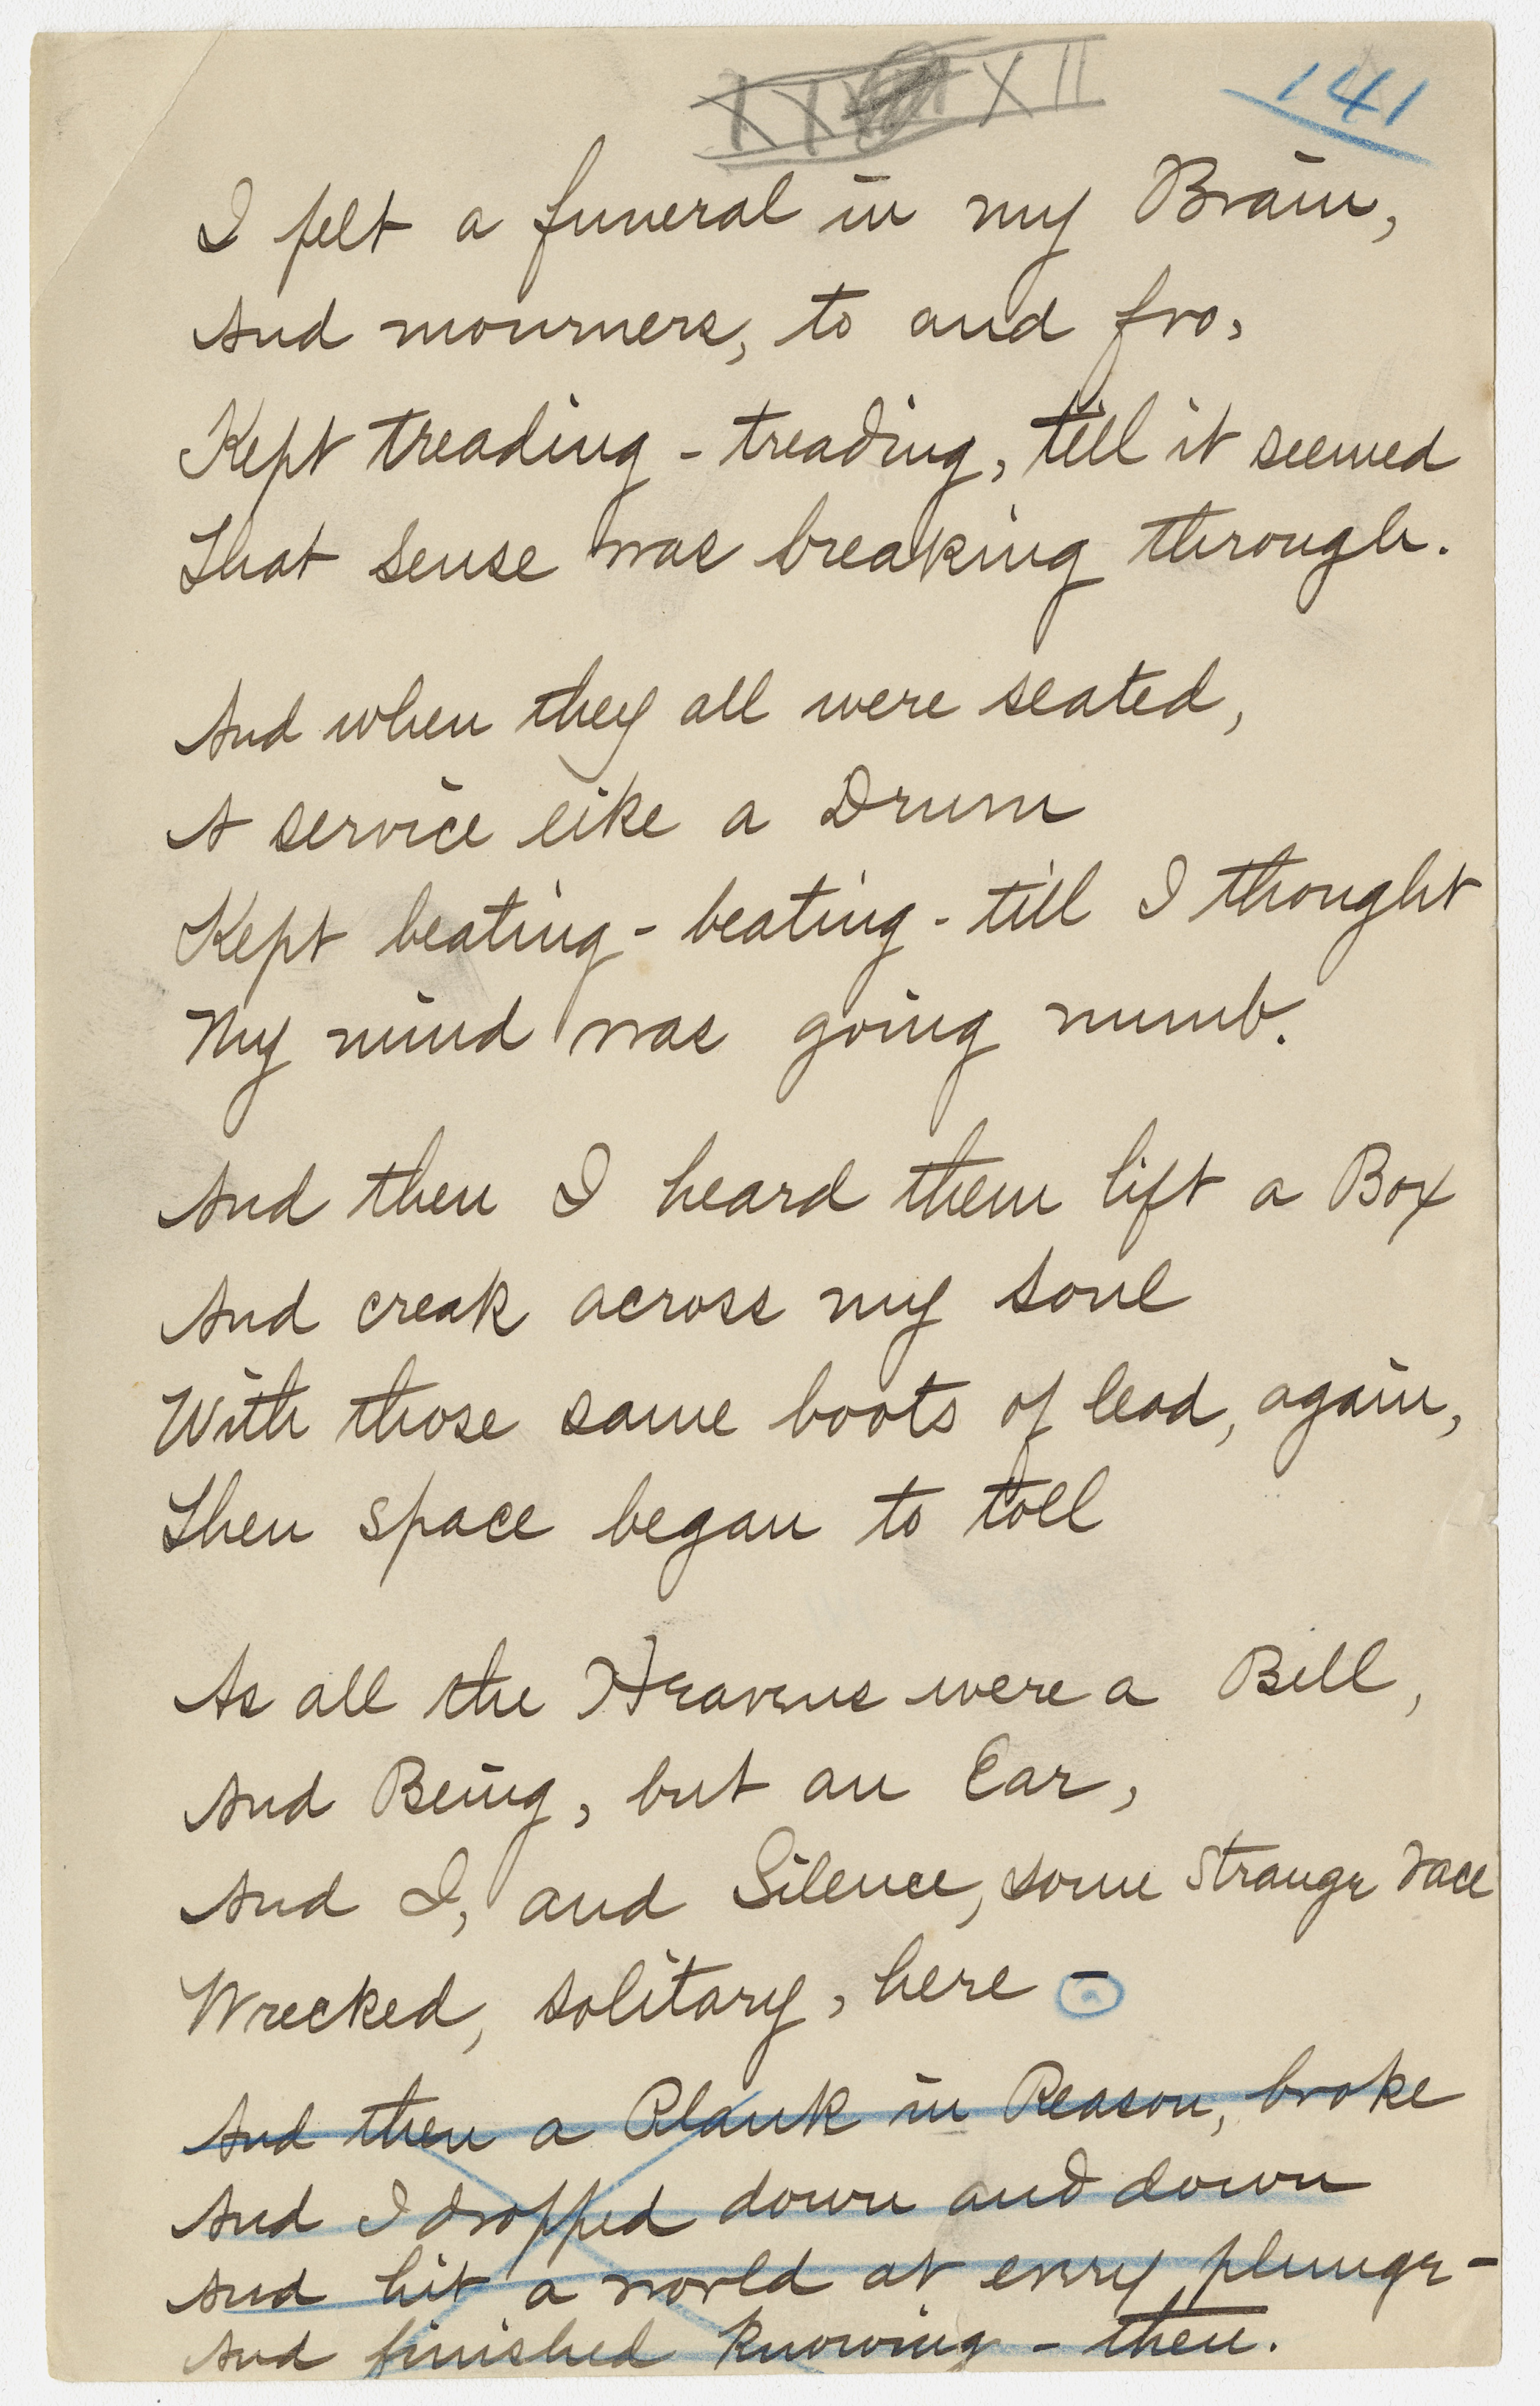 XII
141
I felt a funeral in my Brain,
And mourners, to and fro,
Kept treading - treading, till it seemed
That sense was breaking through.
And when they all were seated,
A service like a Drum
Kept beating - beating - till I thought
My mind was going numb.
And then I heard them lift a Box
And creak across my soul
With those same boots of lead, again,
Then space began to toll
As all the Heavens were a Bell,
And Being, but an Ear,
And I, and Silence, some Strange race
Wrecked, solitary, here -
And then a Plank in Reason, broke
And I dropped down and down
And hit a world at every plunge -
And finished knowing - then.